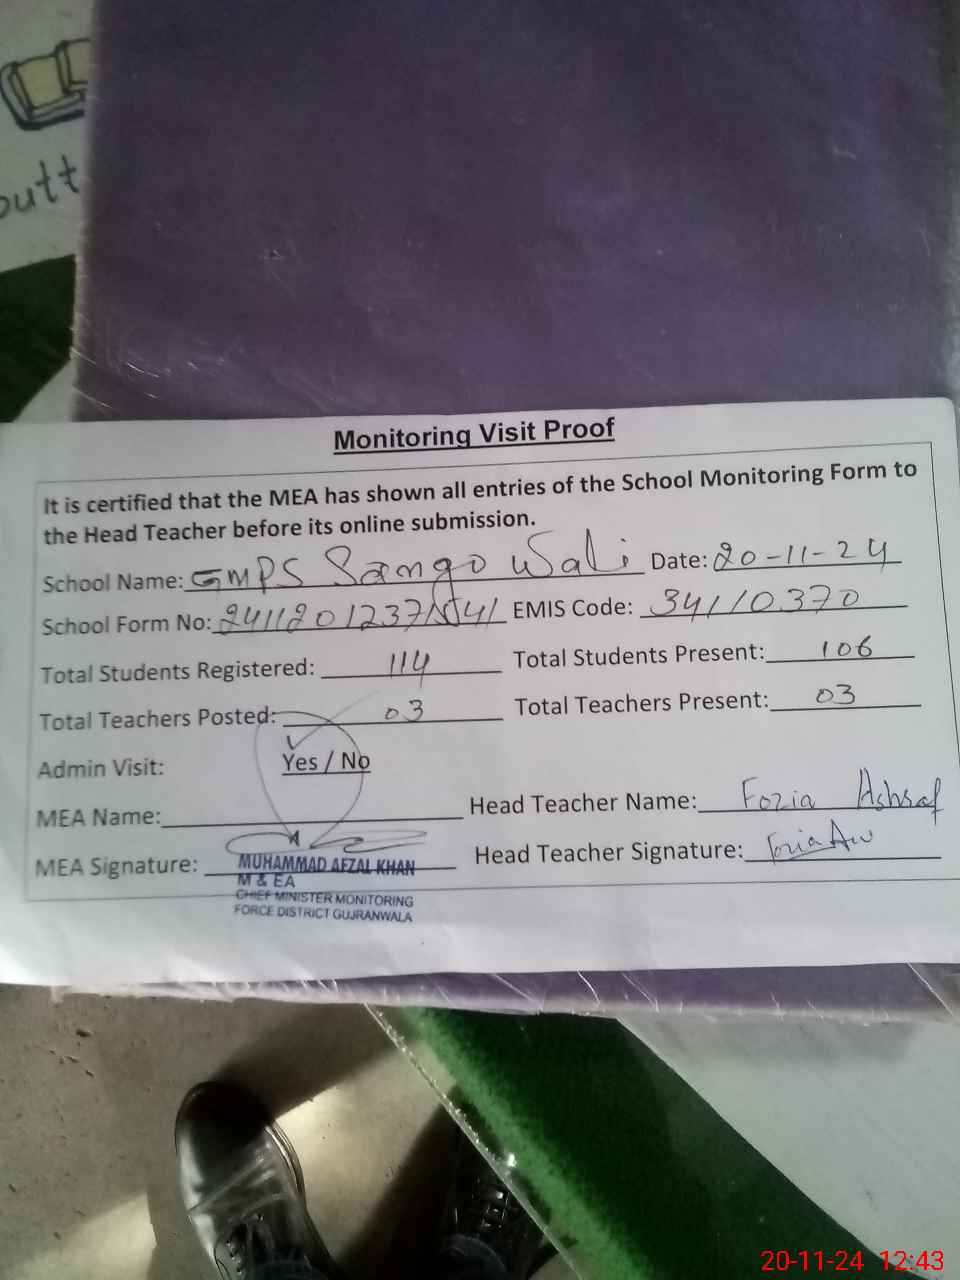 butt
Monitoring Visit Proof
It is certified that the MEA has shown all entries of the School Monitoring Form to
the Head Teacher before its online submission.
School Name: GMPS Sango Wali Date: 20-11-24
School Form No: EMIS Code: 34110370
Total Students Registered: 114 Total Students Present: 106
Total Teachers Posted: 03 Total Teachers Present: 03
Admin Visit: Yes / No
MEA Name: Head Teacher Name: Fozia Ashraf
MEA Signature: Head Teacher Signature:
MUHAMMAD AFZAL KHAN
M & EA
CHIEF MINISTER MONITORING
FORCE DISTRICT GUJRANWALA
20-11-24 12:43